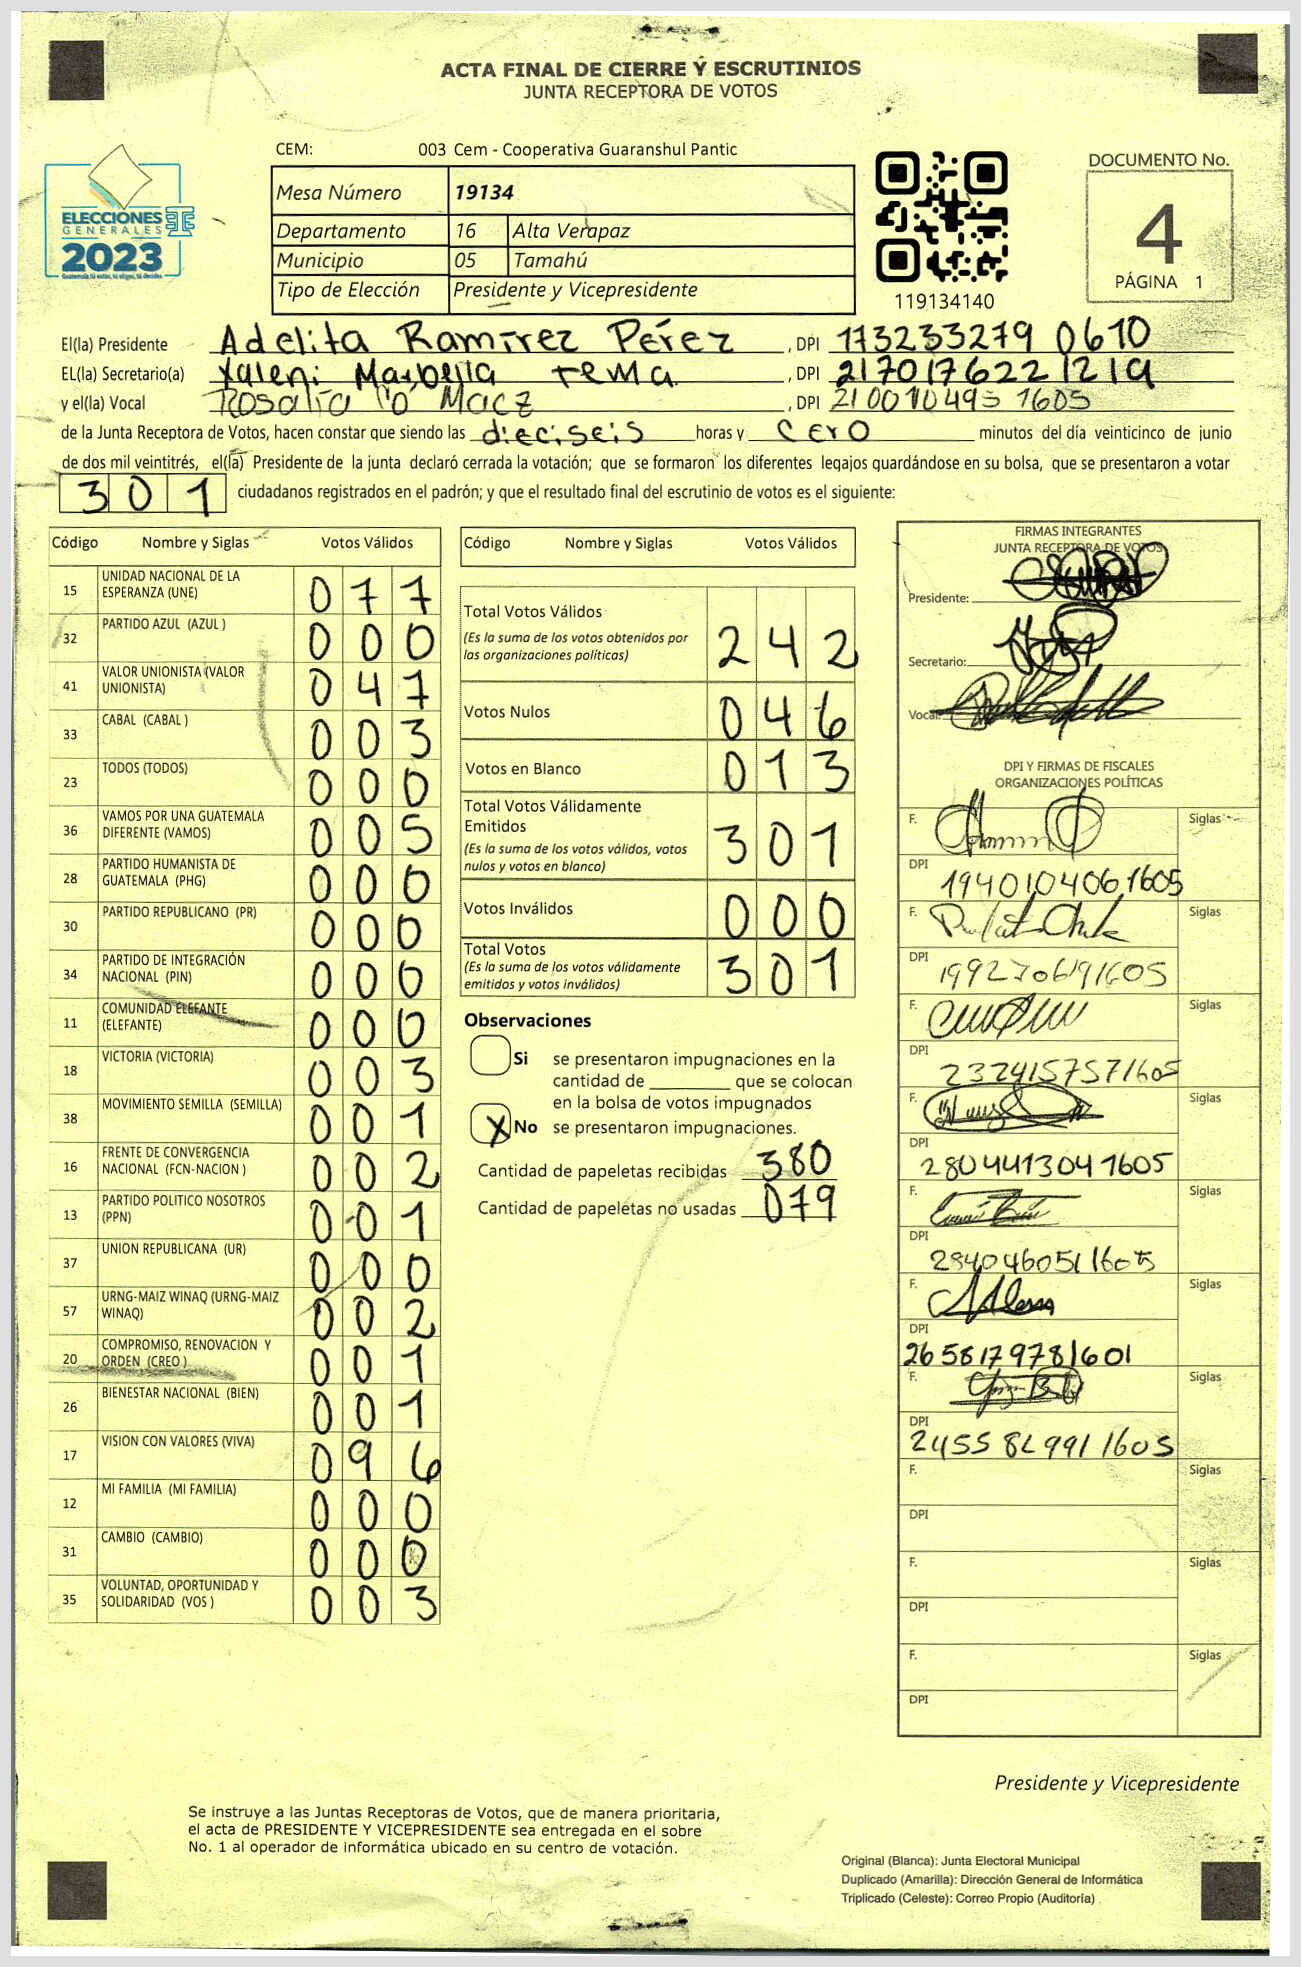 ACTA FINAL DE CIERRE Y ESCRUTINIOS
JUNTA RECEPTORA DE VOTOS
CEM: 003 Cem - Cooperativa Guaranshul Pantic
ELECCIONES
GENERALES
2023
Guatemala, tú votas, tú eliges, tú decides
Mesa Número 19134
Departamento 16 Alta Verapaz
Municipio 05 Tamahú
Tipo de Elección Presidente y Vicepresidente
119134140
DOCUMENTO No.
4
PÁGINA 1
El(la) Presidente Adelita Ramírez Pérez, DPI 173233279 0610
EL(la) Secretario(a) Yuleni Tema, DPI 2170176221219
y el(la) Vocal Rosalía Có Macz, DPI 210010495 1605
de la Junta Receptora de Votos, hacen constar que siendo las dieciseis horas y cero minutos del día veinticinco de junio
de dos mil veintitrés, el(la) Presidente de la junta declaró cerrada la votación; que se formaron los diferentes legajos guardándose en su bolsa, que se presentaron a votar
301 ciudadanos registrados en el padrón; y que el resultado final del escrutinio de votos es el siguiente:
Código Nombre y Siglas Votos Válidos
15 UNIDAD NACIONAL DE LA ESPERANZA (UNE) 077
32 PARTIDO AZUL (AZUL ) 000
41 VALOR UNIONISTA (VALOR UNIONISTA) 047
33 CABAL (CABAL ) 003
23 TODOS (TODOS) 000
36 VAMOS POR UNA GUATEMALA DIFERENTE (VAMOS) 005
28 PARTIDO HUMANISTA DE GUATEMALA (PHG) 000
30 PARTIDO REPUBLICANO (PR) 000
34 PARTIDO DE INTEGRACIÓN NACIONAL (PIN) 000
11 COMUNIDAD ELEFANTE (ELEFANTE) 000
18 VICTORIA (VICTORIA) 003
38 MOVIMIENTO SEMILLA (SEMILLA) 001
16 FRENTE DE CONVERGENCIA NACIONAL (FCN-NACION ) 002
13 PARTIDO POLITICO NOSOTROS (PPN) 001
37 UNION REPUBLICANA (UR) 000
57 URNG-MAIZ WINAQ (URNG-MAIZ WINAQ) 002
20 COMPROMISO, RENOVACION Y ORDEN (CREO ) 001
26 BIENESTAR NACIONAL (BIEN) 001
17 VISION CON VALORES (VIVA) 096
12 MI FAMILIA (MI FAMILIA) 000
31 CAMBIO (CAMBIO) 000
35 VOLUNTAD, OPORTUNIDAD Y SOLIDARIDAD (VOS ) 003
Código Nombre y Siglas Votos Válidos
Total Votos Válidos 242
(Es la suma de los votos obtenidos por
las organizaciones políticas)
Votos Nulos 046
Votos en Blanco 013
Total Votos Válidamente
Emitidos 301
(Es la suma de los votos válidos, votos
nulos y votos en blanco)
Votos Inválidos 000
Total Votos 301
(Es la suma de los votos válidamente
emitidos y votos inválidos)
Observaciones
Si se presentaron impugnaciones en la
cantidad de ________ que se colocan
en la bolsa de votos impugnados
X No se presentaron impugnaciones.
Cantidad de papeletas recibidas 380
Cantidad de papeletas no usadas 079
FIRMAS INTEGRANTES
JUNTA RECEPTORA DE VOTOS
Presidente:
Secretario:
Vocal:
DPI Y FIRMAS DE FISCALES
ORGANIZACIONES POLÍTICAS
F. Siglas
DPI 1940104061605
F. Siglas
DPI 1992706191605
F. Siglas
DPI 2324157571605
F. Siglas
DPI 2804413041605
F. Siglas
DPI 2840460511605
F. Siglas
DPI 2658179781601
F. Siglas
DPI 2455 1605
F. Siglas
DPI
F. Siglas
DPI
F. Siglas
DPI
Presidente y Vicepresidente
Se instruye a las Juntas Receptoras de Votos, que de manera prioritaria,
el acta de PRESIDENTE Y VICEPRESIDENTE sea entregada en el sobre
No. 1 al operador de informática ubicado en su centro de votación.
Original (Blanca): Junta Electoral Municipal
Duplicado (Amarilla): Dirección General de Informática
Triplicado (Celeste): Correo Propio (Auditoría)